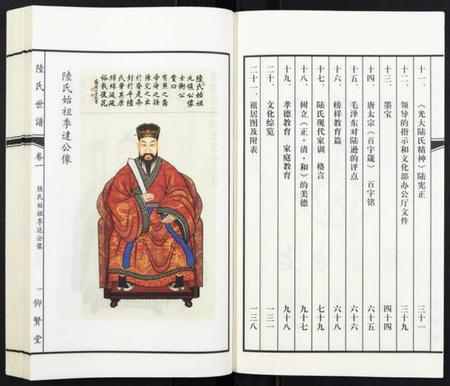 十一、《光大陆氏精神》陆宪正 三十一
十二、领导的指示和文化部办公厅文件 三十九
十三、墨宝 四十四
十四、唐太宗《百字箴》百字铭 六十五
十五、毛泽东对陆逊的评点 六十六
十六、榜样教育篇 六十八
十七、陆氏现代家训 格言 七十九
十八、树立《正·清·和》的美德 八十七
十九、孝德教育 家庭教育 九十八
二十、文化综览 一三一
二十一、祖居图及附表 一三八
陸氏始祖
元侯公像
士衡公
贊曰
有熊之裔
帝舜之孫
陳完之出
於齊是奔
封於平陸
氏肇其原
綿綿延延
裕我後昆
陸氏始祖季達公像
陸氏世譜 卷一 陸氏始祖季達公像 一 仰賢堂